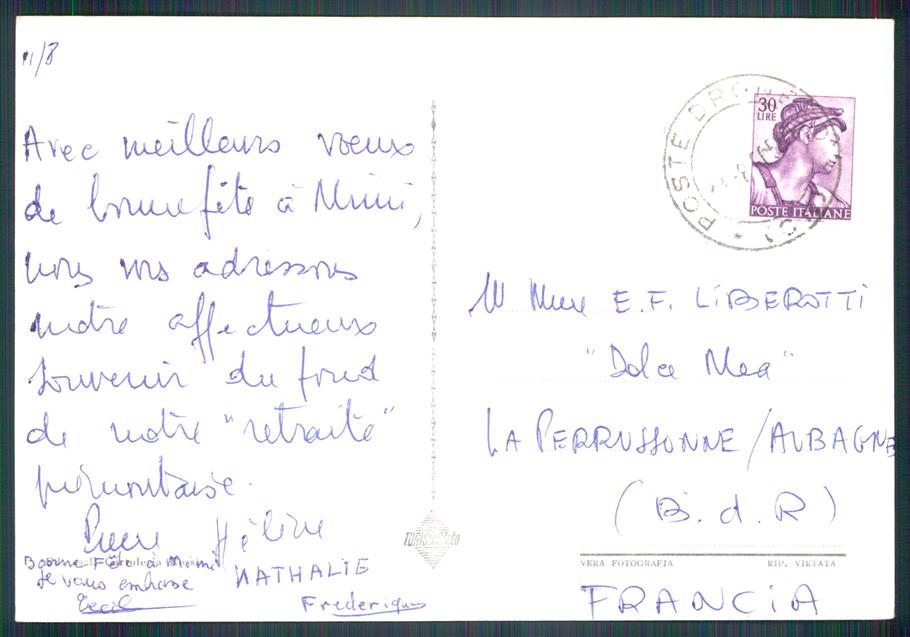 11/8
Avec meilleurs vœux
de bonne fête à Mimi,
nous vous adressons
notre affectueux
souvenir du fond
de notre "retraite"
piémontaise.
Pierre Hélène
Bonne Fête à Mimi
Je vous embrasse
Cecile
NATHALIE
Frederique
POSTE DRONERO
30
LIRE
POSTE ITALIANE
M Mme E.F. LIBEROTTI
"Dolce Mea"
LA PERRUSSONNE / AUBAGNE
(B. d. R)
VERA FOTOGRAFIA RIP. VIETATA
FRANCIA